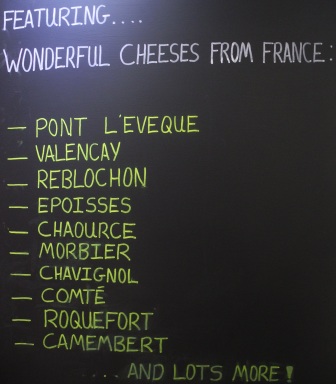 FEATURING....
WONDERFUL CHEESES FROM FRANCE:
— PONT L'EVEQUE
— VALENCAY
— REBLOCHON
— EPOISSES
— CHAOURCE
— MORBIER
— CHAVIGNOL
— COMTÉ
— ROQUEFORT
— CAMEMBERT
.... AND LOTS MORE!